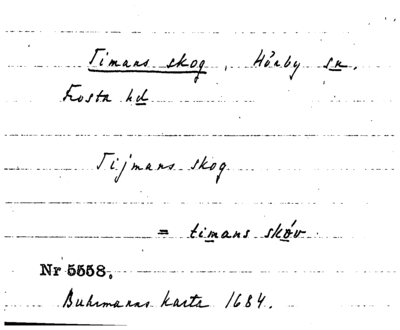 Timans skog, Hörby sn.
Frosta hd
Tijmans skog
= timans skóv
Nr 5558.
Buhrmanns karta 1684.